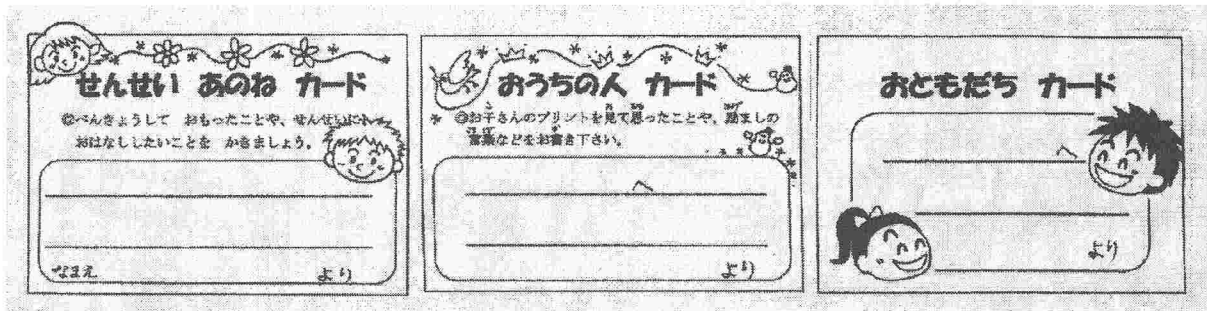 せんせい あのね カード
◎べんきょうして おもったことや、せんせいに
おはなししたいことを かきましょう。
なまえ
より
おうちの人 カード
◎お子さんのプリントを見て思ったことや、励ましの
言葉などをお書き下さい。
へ
より
おともだち カード
へ
より